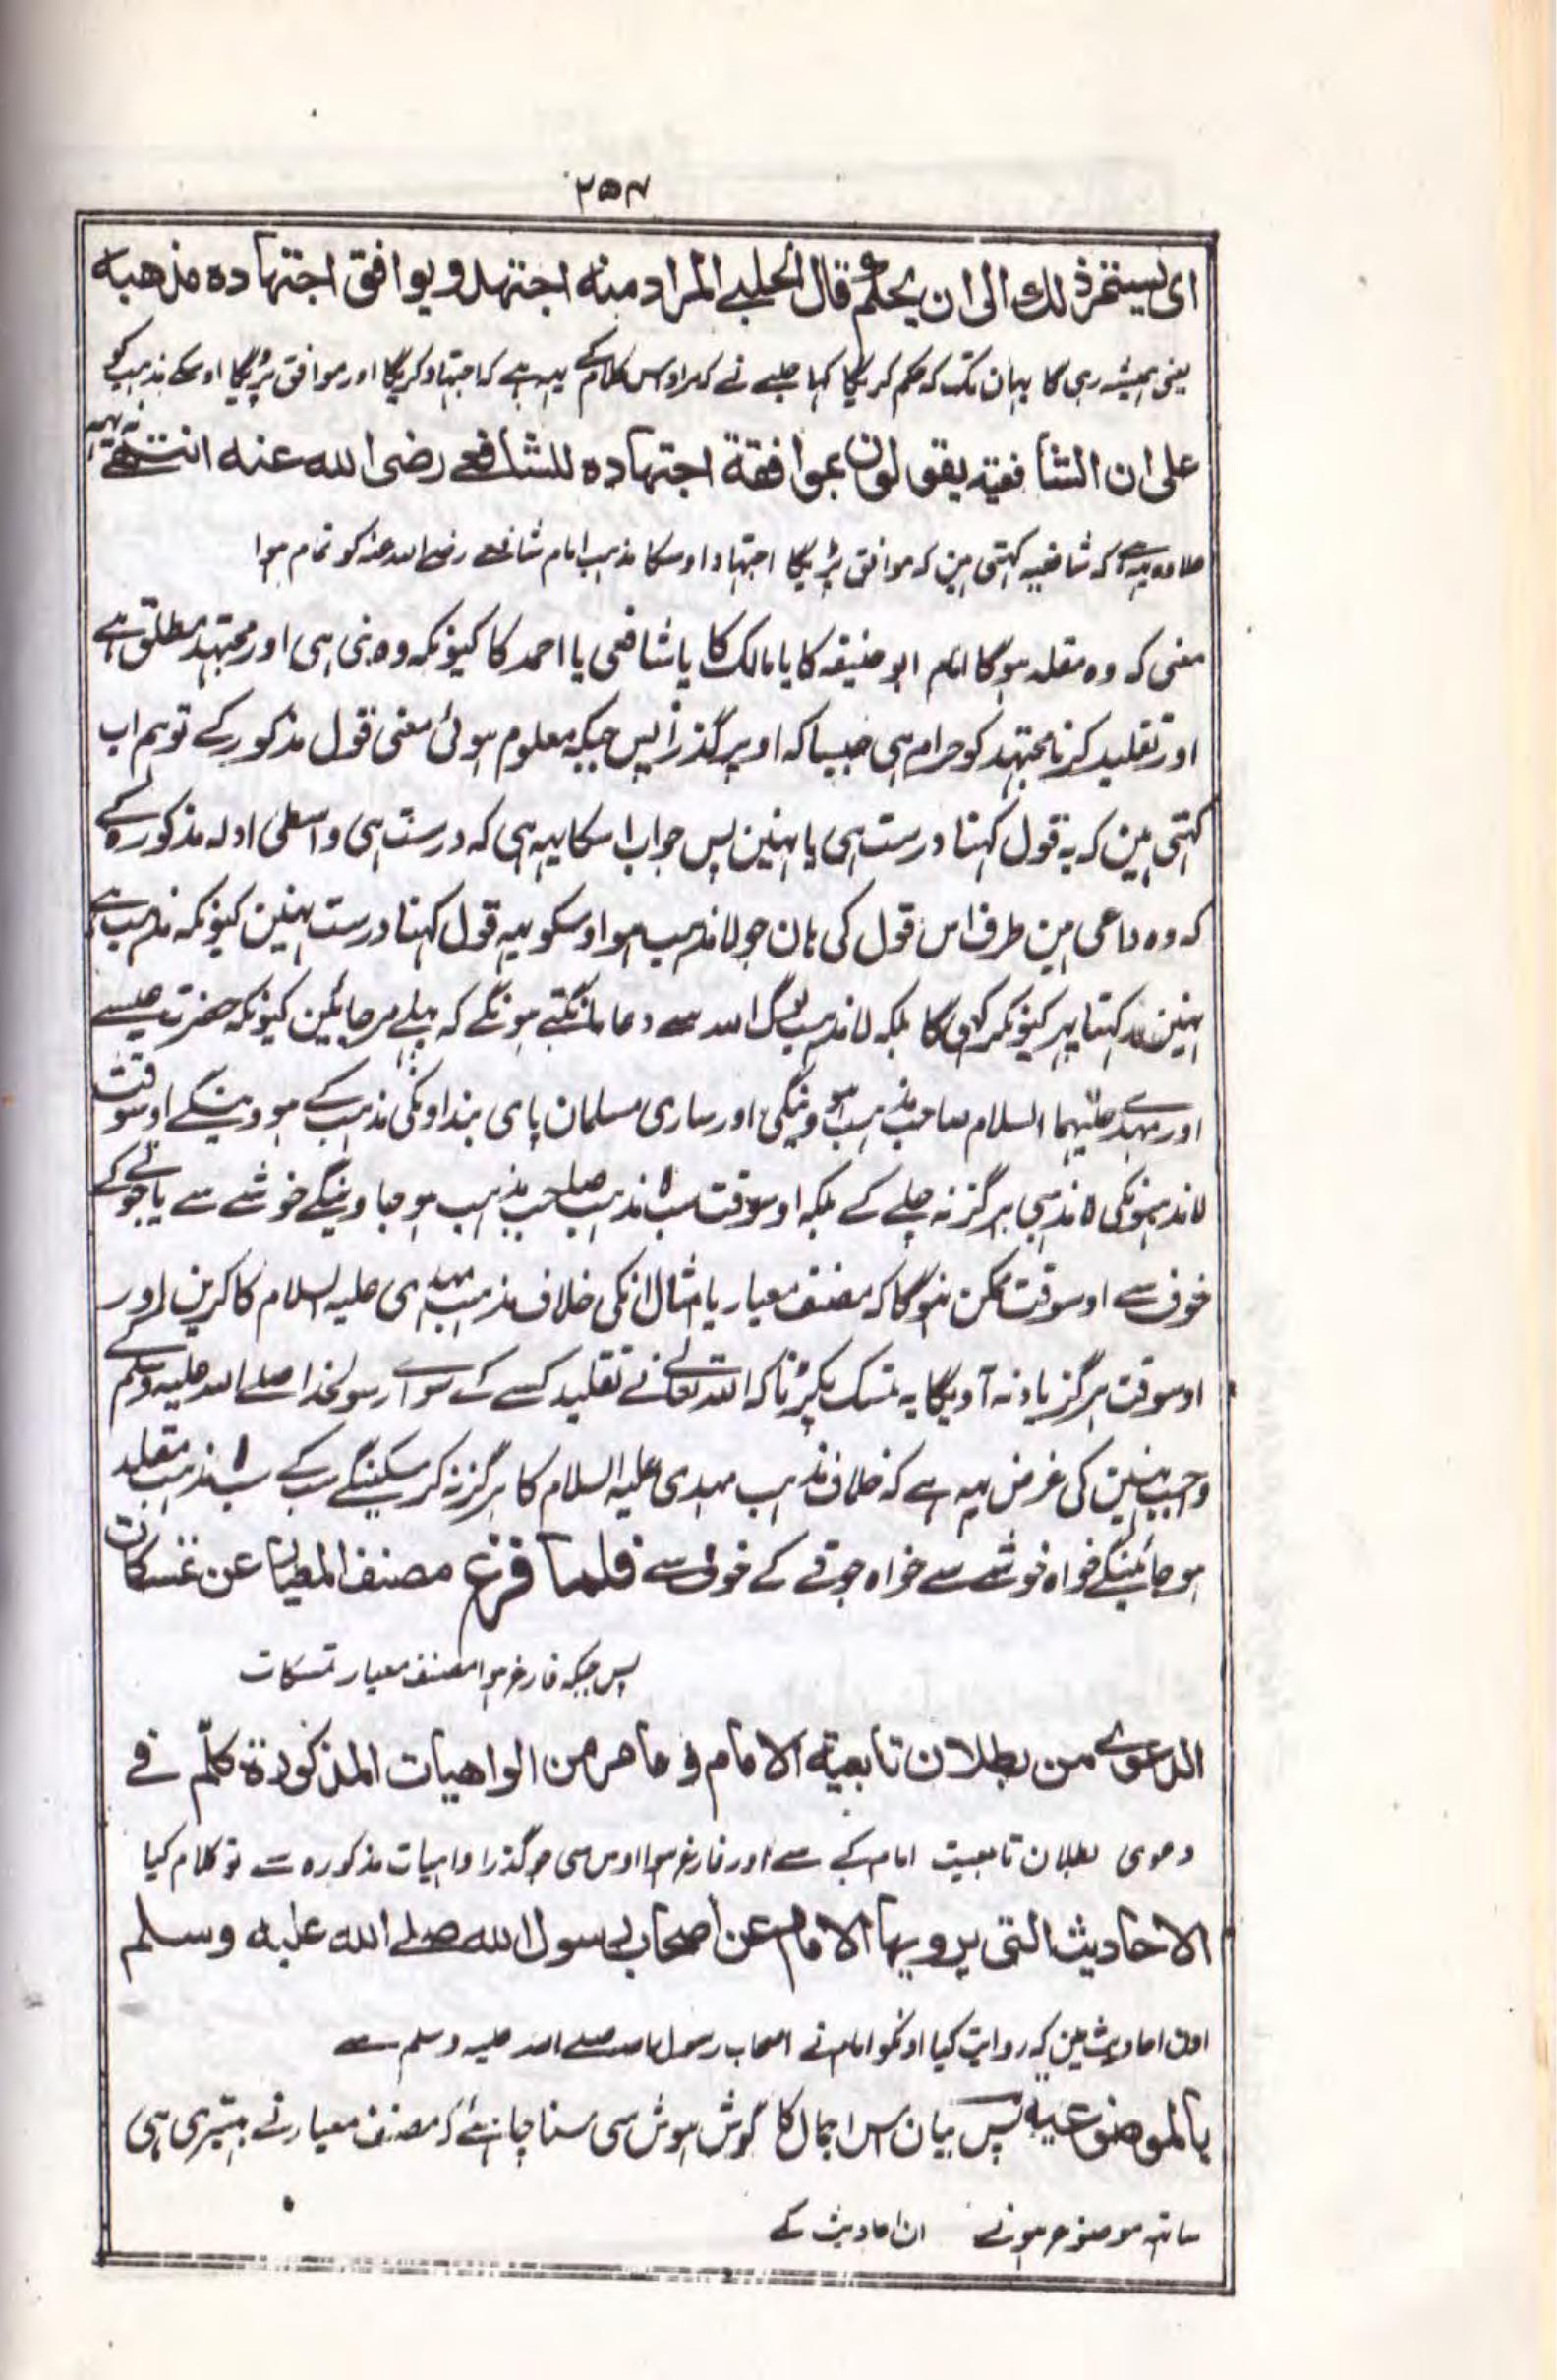 ۲۵۴
ای یستمر ذلك الی ان یحکم و قال الحلبی المراد منه اجتهد و یوافق اجتهاده مذهبه
یعنی ہمیشہ رہی گا یہان تک کہ حکم کریگا کہا حلبے نے کہ مراد اس کلام کے یہہ ہے کہ اجتہاد کریگا اور موافق پڑیگا اوسکے مذہب کو
علی ان الشافعیة یقولون بموافقة اجتهاده للشافعے رضی الله عنه انتهے
علاوہ یہہ ہے کہ شافعیہ کہتی ہین کہ موافق پڑیگا اجتہاد اوسکا مذہب امام شافعے رضے اللہ عنہ کو تمام ہوا
معنی کہ وہ مقلد ہوگا امام ابو حنیفہ کا یا مالک کا یا شافعی یا احمد کا کیونکہ وہ نبی ہی اور مجتہد مطلق ہے
اور تقلید کرنا مجتہد کو حرام ہی جیسا کہ اوپر گذرا پس جبکہ معلوم ہوئی معنی قول مذکور کے تو ہم اب
کہتی ہین کہ یہ قول کہنا درست ہی یا نہین پس جواب اسکا یہہ ہی کہ درست ہی واسطی ادلہ مذکورہ کے
کہ وہ داعی ہین طرف اس قول کی ہان جو لا مذہب ہو اوسکو یہہ قول کہنا درست نہین کیونکہ مذہب ہے
نہین رکہتا پہر کیونکر کہی گا بلکہ لا مذہب لوگ اللہ سے دعا مانگتے ہونگے کہ پہلے مر جائین کیونکہ حضرت عیسے
اور مہدے علیہما السلام صاحب مذہب ہو وینگی اور ساری مسلمان پای بند اونکی مذہب کے ہو وینگے اوسوقت
لا مذہبونکی لا مذہبی ہرگز نہ چلے کے بلکہ اوسوقت سب لا مذہب صاحب مذہب ہو جاوینگے خوشے سے یا جوتے کے
خوف سے اوسوقت ممکن نہوگا کہ مصنف معیار یا امثال انکی خلاف مذہب مہدی علیہ السلام کا کرین اور
اوسوقت ہرگز یاد نہ آویگا یہ تمسک پکڑنا کہ اللہ تعالے نے تقلید کسے کے سوا رسولخدا صلے اللہ علیہ وسلم کے
واجب نہین کی غرض یہہ ہے کہ خلاف مذہب مہدی علیہ السلام کا ہرگز نہ کر سکینگے سب کے سب لا مذہب مقلد
ہو جائینگے خواہ خوشے سے خواہ جوتے کے خوف سے فلما فرغ مصنف المعیار عن تمسکات
پس جبکہ فارغ ہوا مصنف معیار تمسکات
الدعوے من بطلان تابعیة الامام و مامر من الواهیات المذکورة کلّم فے
دعوی بطلان تابعیت امام کے سے اور فارغ ہوا اوس سی جو گذرا واہیات مذکورہ سے تو کلام کیا
الاحادیث التی یرویها الامام عن اصحاب رسول الله صلے الله علیه وسلم
اون احادیث مین کہ روایت کیا اونکو امام نے اصحاب رسول اللہ صلے اللہ علیہ وسلم سے
بالموضوعیة پس بیان اس اجمال کا گوش ہوش سی سنا چاہئے کہ مصنف معیار نے بہتیری ہی
ساتہ موضوع ہونے ان احادیث کے